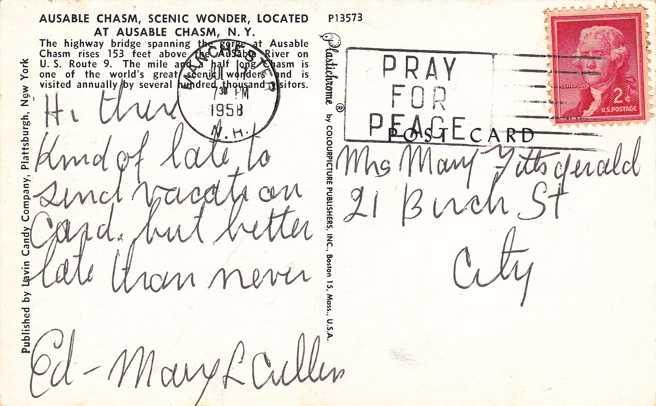 AUSABLE CHASM, SCENIC WONDER, LOCATED
AT AUSABLE CHASM, N. Y.
The highway bridge spanning the gorge at Ausable
Chasm rises 153 feet above the AuSable River on
U. S. Route 9. The mile and a half long Chasm is
one of the world's great scenic wonders and is
visited annually by several hundred thousand visitors.
P13573
MANCHESTER
730 PM
1958
N. H.
PRAY
FOR
PEACE
2¢
U.S. POSTAGE
POST CARD
Hi there
Kind of late to
send vacation
Card. but better
late than never
Ed - Mary L Cullen
Mrs Mary Fittsgerald
21 Birch St
City
Published by Lavin Candy Company, Plattsburgh, New York
Plastichrome ® by COLOURPICTURE PUBLISHERS, INC., Boston 15, Mass., U.S.A.